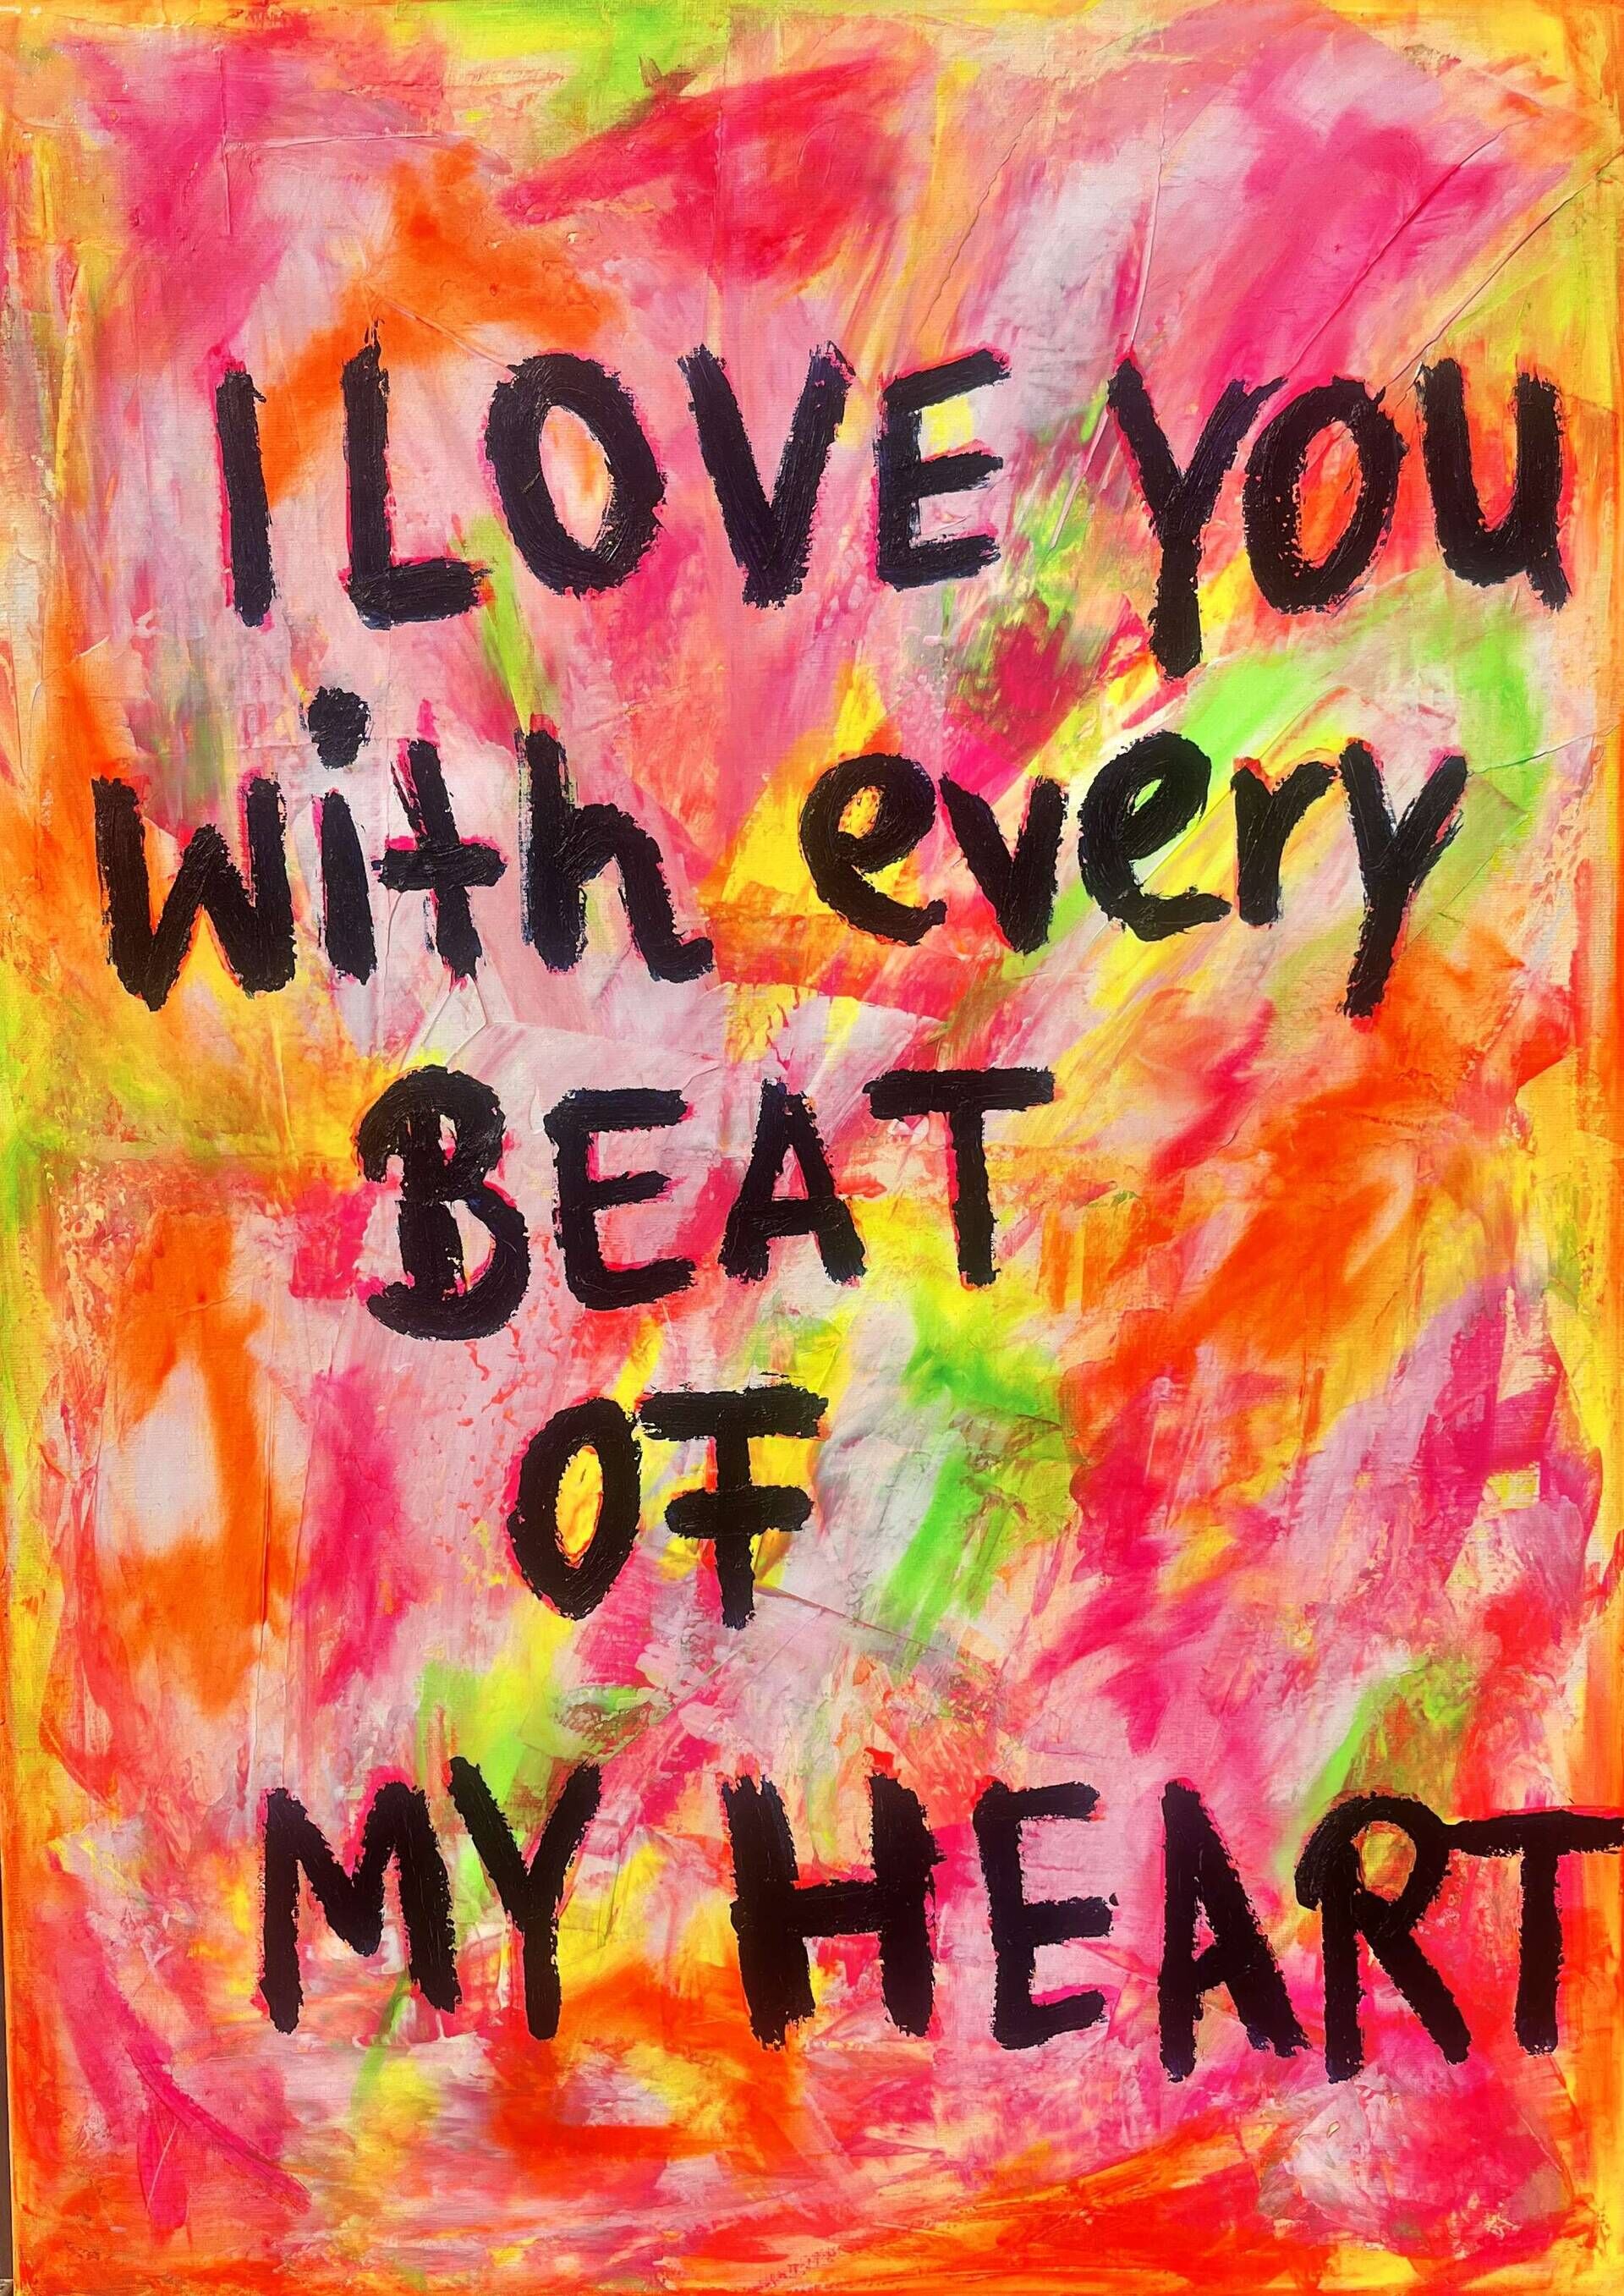 I LOVE YOU
with every
BEAT
OF
MY HEART